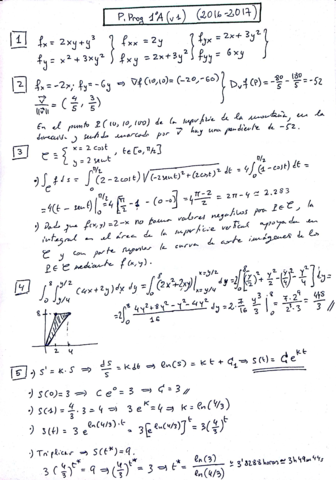 P.Prog 1ºA (v1) (2016-2017)
1 fx = 2xy + y³ } fxx = 2y } fyx = 2x + 3y²
fy = x² + 3xy² } fxy = 2x + 3y² } fyy = 6xy
2 fx = -2x; fy = -6y ⇒ ∇f(10,10) = (-20,-60) } Dvf(P) = -80/5 - 180/5 = -52
v/||v|| = (4/5, 3/5)
En el punto (10,10,100) de la superficie de la montaña, en la
dirección y sentido marcado por v hay una pendiente de -52.
3 C ≡ { x = 2cost
y = 2sent , t∈[0,π/2]
·) ∫C f ds = ∫0^π/2 (2-2cost) √((-2sent)²+(2cost)²) dt = 4∫0^π/2 (1-cost) dt =
= 4(t - sent)|0^π/2 = 4[π/2 - 1 - (0-0)] = 4 (π-2)/2 = 2π-4 ≃ 2.283
·) Dado que f(x,y) = 2-x no toma valores negativos para P∈C, la
integral es el área de la superficie vertical apoyada en
C y con parte superior la curva de
P∈C mediante f(x,y).
4 ∫0^8 ∫y/4^y/2 (4x+2y) dx dy = ∫0^8 (2x²+2xy)|x=y/4^x=y/2 dy =
= 2∫0^8 (4y²+8y²-y²-4y²)/16 dy = 2·7/16 y³/3 |0^8 = 448/3
2 4
5 ·) S' = K·S ⇒ dS/S = K dt ⇒ ln(S) = Kt + C1 ⇒ S(t) = C e^Kt
·) S(0) = 3 ⇒ C e⁰ = 3 ⇒ C = 3 //
·) S(1) = 4/3·3 = 4 ⇒ 3e^K = 4 ⇒ K = ln(4/3)
·) S(t) = 3 e^ln(4/3)·t = 3[e^ln(4/3)]^t = 3(4/3)^t
·) Triplicar ⇒ S(t*) = 9.
3(4/3)^t* = 9 ⇒ (4/3)^t* = 3 ⇒ t* = ln(3)/ln(4/3) ≃ 3'8188 horas ≃ 3h 49m